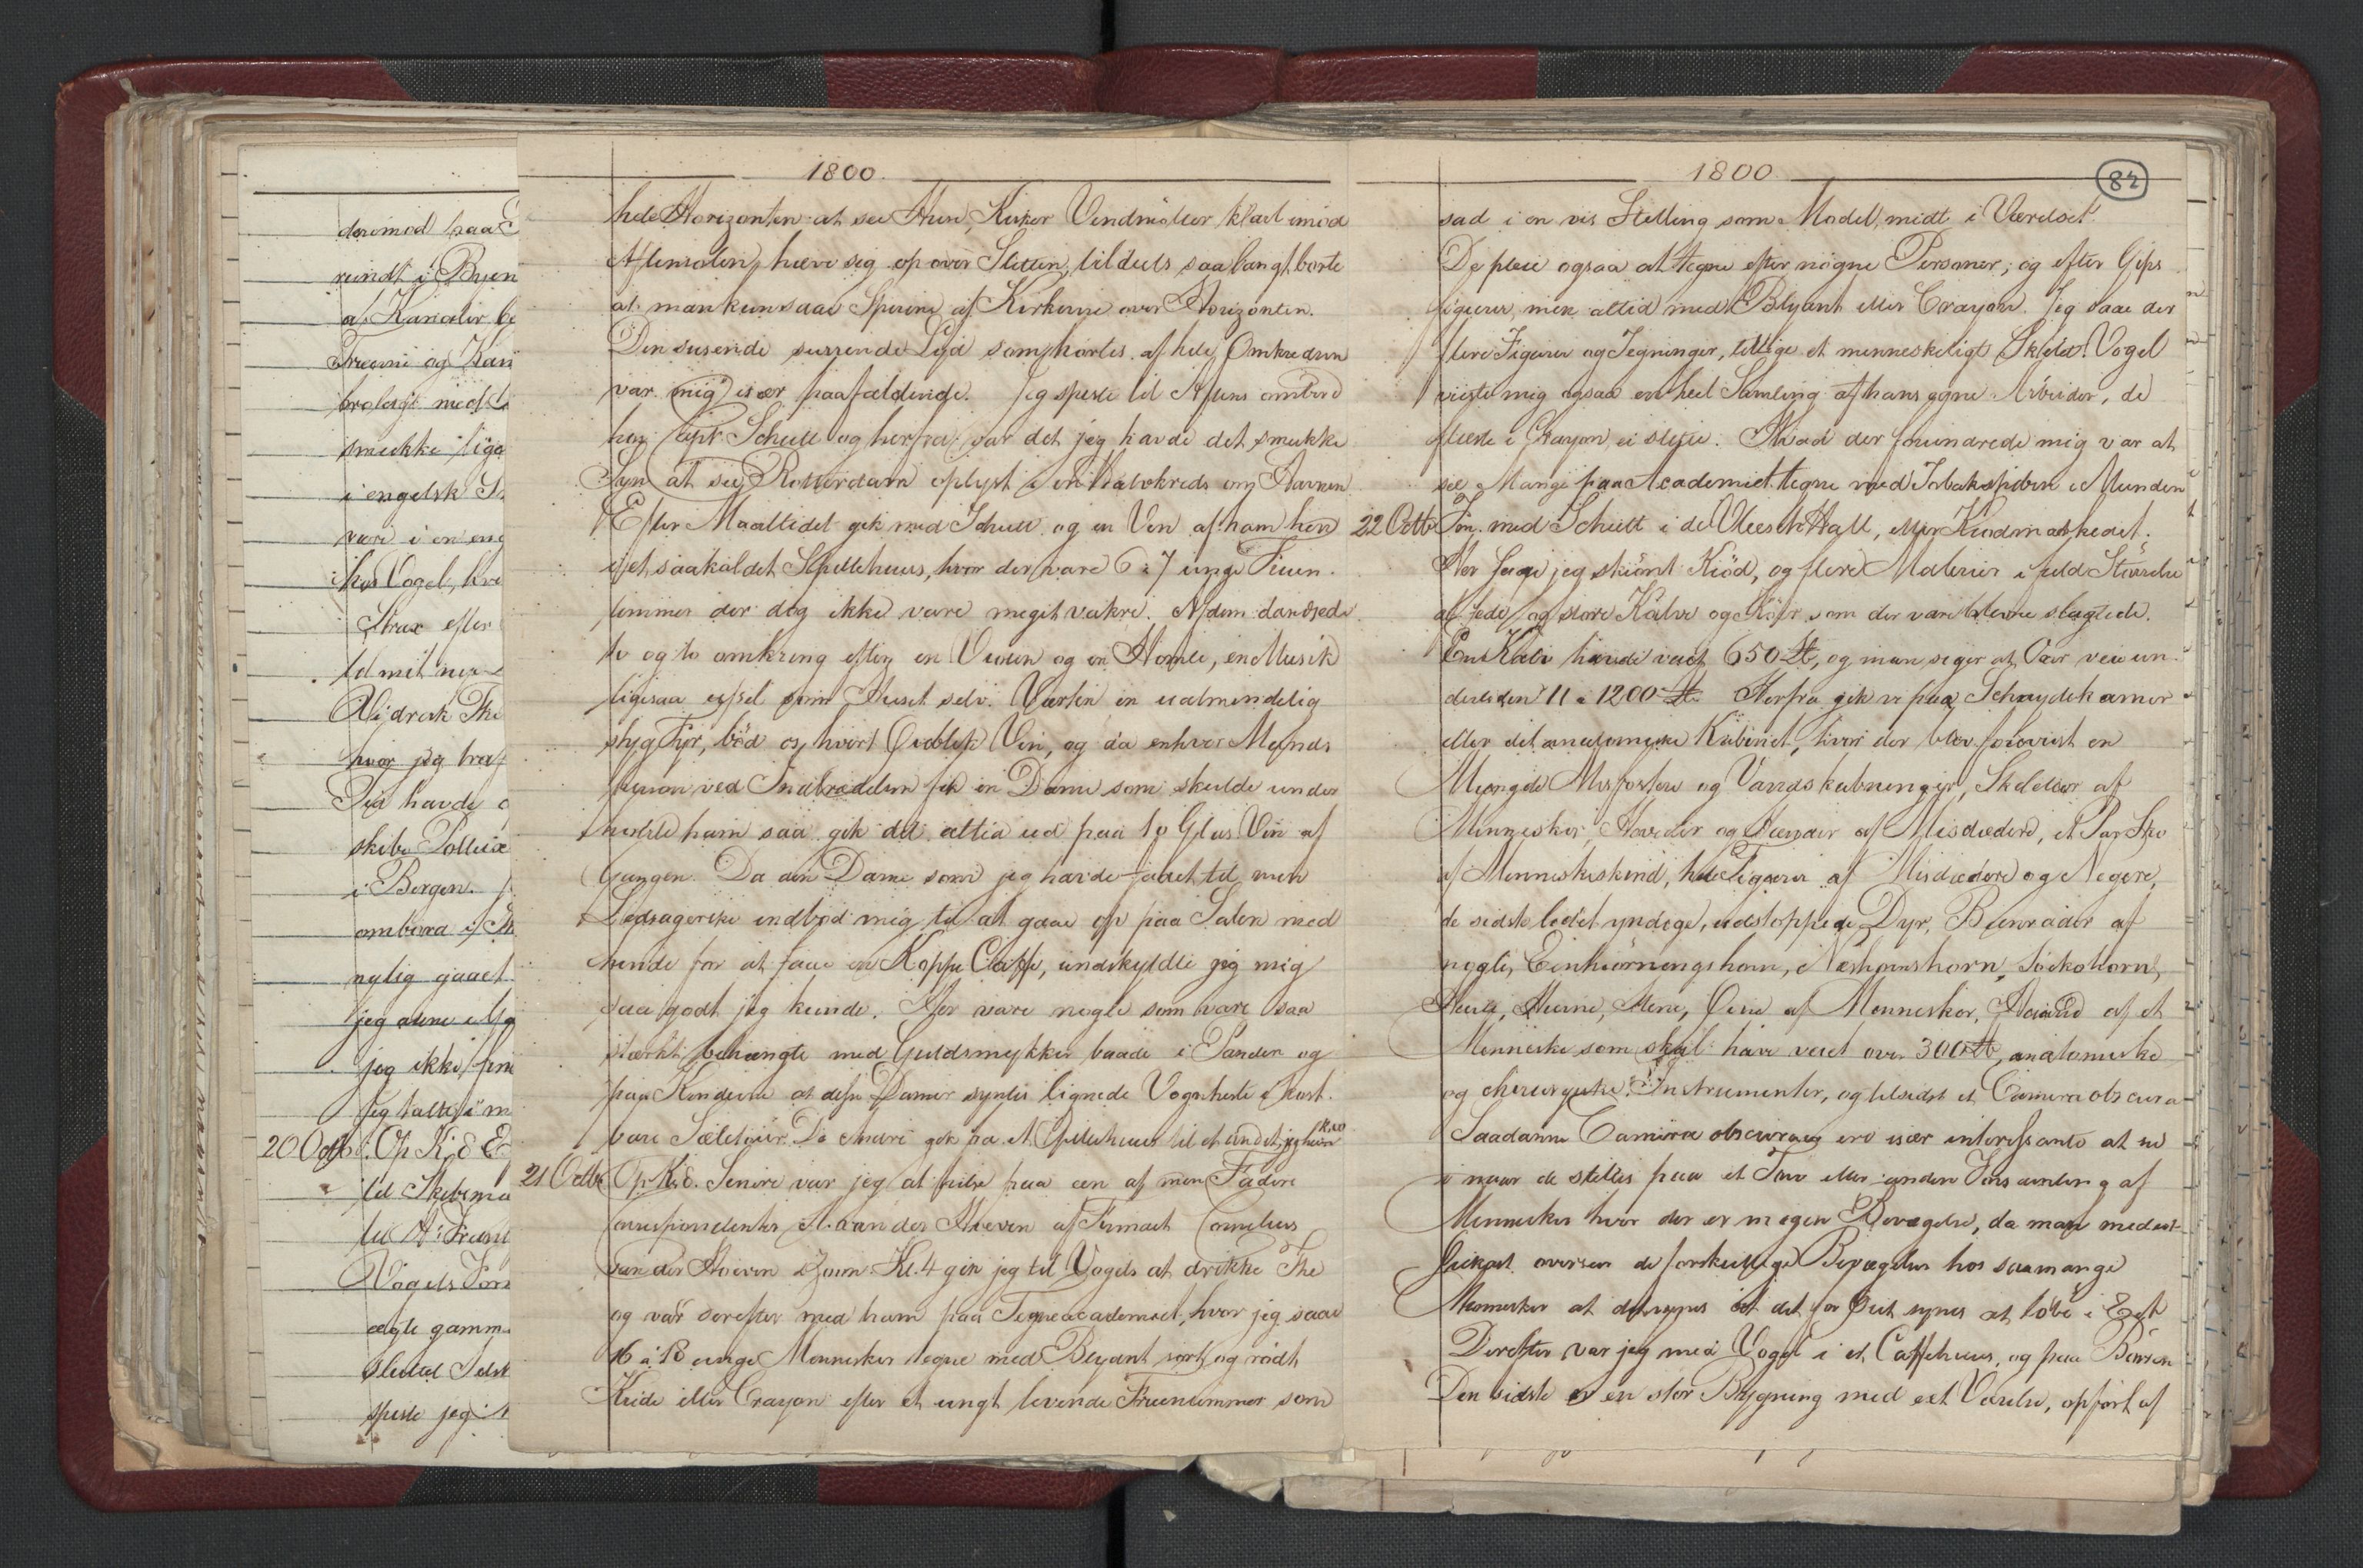 derimod paa
rundt i Byen
af Kanaler be
Træerne og Kan
brolagt med
smukke liga
i engelsk
være i en eng
hos Vogel, hvo
Strax efter
til mit
hvor jeg traf
Da havde
skibs
i Bergen.
ombord i
nylig gaaet
jeg alene
jeg ikke
jeg talte
20 Octbr. Op Kl. 8
til Skibsmæ
til
Vogels
ægte gamm
Selsk
spiste jeg
1800.
hele Horizonten at see Huse, Kirker Vindmøller klart imod
Aftensolen, hæve sig op over Sletten, tildeels saa langt borte
at man kun saae Spirene af Kirkerne over Horizonten.
Den susende surrende Lyd som hørtes af hele Omkredsen
var mig især paafaldende. Jeg spiste til Aftens ombord
hos Capt Schutt og herfra var det jeg havde det smukke
Syn at see Rotterdam oplyst i en Halvkreds om Havnen
Efter Maaltidet gik med Schutt og en Ven af ham hen
i et saakaldet Spillehuus, hvor der vare 6 a 7 unge Fruen-
timmer der dog ikke vare meget vakre. Af dem dandsede
to og to omkring efter en Violin og en Humle, en Musik
ligesaa ussel som Huset selv. Værten en ualmindelig
styg Fyr, bød os hvert Øieblik Viin, og da enhver Mands
person ved Indtrædelsen fik en Dame som skulde under
holde ham saa gik det altid ud paa 10 Glas Viin af
Gangen. Da den Dame som jeg havde faaet til min
Ledsagerske indbød mig til at gaae op paa Salen med
hende for at faae en Koppe Caffe, undskyldte jeg mig
saa godt jeg kunde. Her vare nogle som vare saa
stærkt behængte med Guldsmykker baade i Panden og
paa Kinderne at disse Damer syntes lignede Vognheste i kost-
bare Sæletøier. De Andre gik fra et Spillehuus til et andet, jeg hiem
Kl 10
21 Octbr. Op Kl. 8. Senere var jeg at hilse paa een af min Faders
Correspondenter A. van der Hoeven af Firmaet Cornelius
van der Hoeven & Zoon. Kl. 4 gik jeg til Vogels at drikke The
og var derefter med ham paa Tegneacademiet, hvor jeg saae
16 a 18 unge Mennesker tegne med Blyant sort og rødt
Kride eller Crayon efter et ungt levende Fruentimmer som
1800
82
sad i en vis Stilling som Model midt i Værelset.
De pleie ogsaa at tegne efter nøgne Personer, og efter Gips
figurer, men altid med Blyant eller Crayon. Jeg saae der
flere Figurer og Tegninger, tillige et menneskeligt Skelet. Vogel
viiste mig ogsaa en heel Samling af hans egne Arbeider, de
fleeste i Crayon, ei slette. Hvad der forundrede mig var at
see Mange paa Academiet tegne med Tobakspiben i Munden
22 Octbr. Fm. med Schutt i de Vleesch Hall, eller Kiødmarkedet.
Her saae jeg skiønt Kiød, og flere Malerier i fuld Størrelse
af fede og store Kalve og Køer som der vare blevne slagtede.
En Kalv havde veiet 650 ℔, og man siger at Øxer veie un-
dertiden 11 a 1200 ℔. Herfra gik vi paa Schnydekamer
eller det anatomiske Kabinet, hvor der blev forevist en
Mængde Misfostere og Vanskabninger, Skeletter af
Mennesker, Hoveder og Hænder af Misdædere, et Par Sko
af Menneskeskind, hele Figurer af Misdædere og Negere,
de sidste lidet yndige, udstoppede Dyr, Beenrader af
nogle, Eenhiørningshorn, Næshornshorn, Søekohorn,
Hierte, Hierne, Øine af Mennesker, Hoved af et
Menneske som skal have veiet over 300 ℔, anatomiske
og chirurgiske Instrumenter, og tilsidst et Camera obscura
Saadanne Camera obscuraer ere især interessante at see
i naar de stilles paa et Torv eller anden Forsamling af
Mennesker hvor der er megen Bevægelse, da man med eet
Øiekast overseer de forskiellige Bevægelser hos saamange
Mennesker at det for Øiet synes at løbe i Eet
Derefter var jeg med Vogel i et Caffehuus, og paa Børsen
Den sidste er en stor Bygning med eet Værelse, opført af